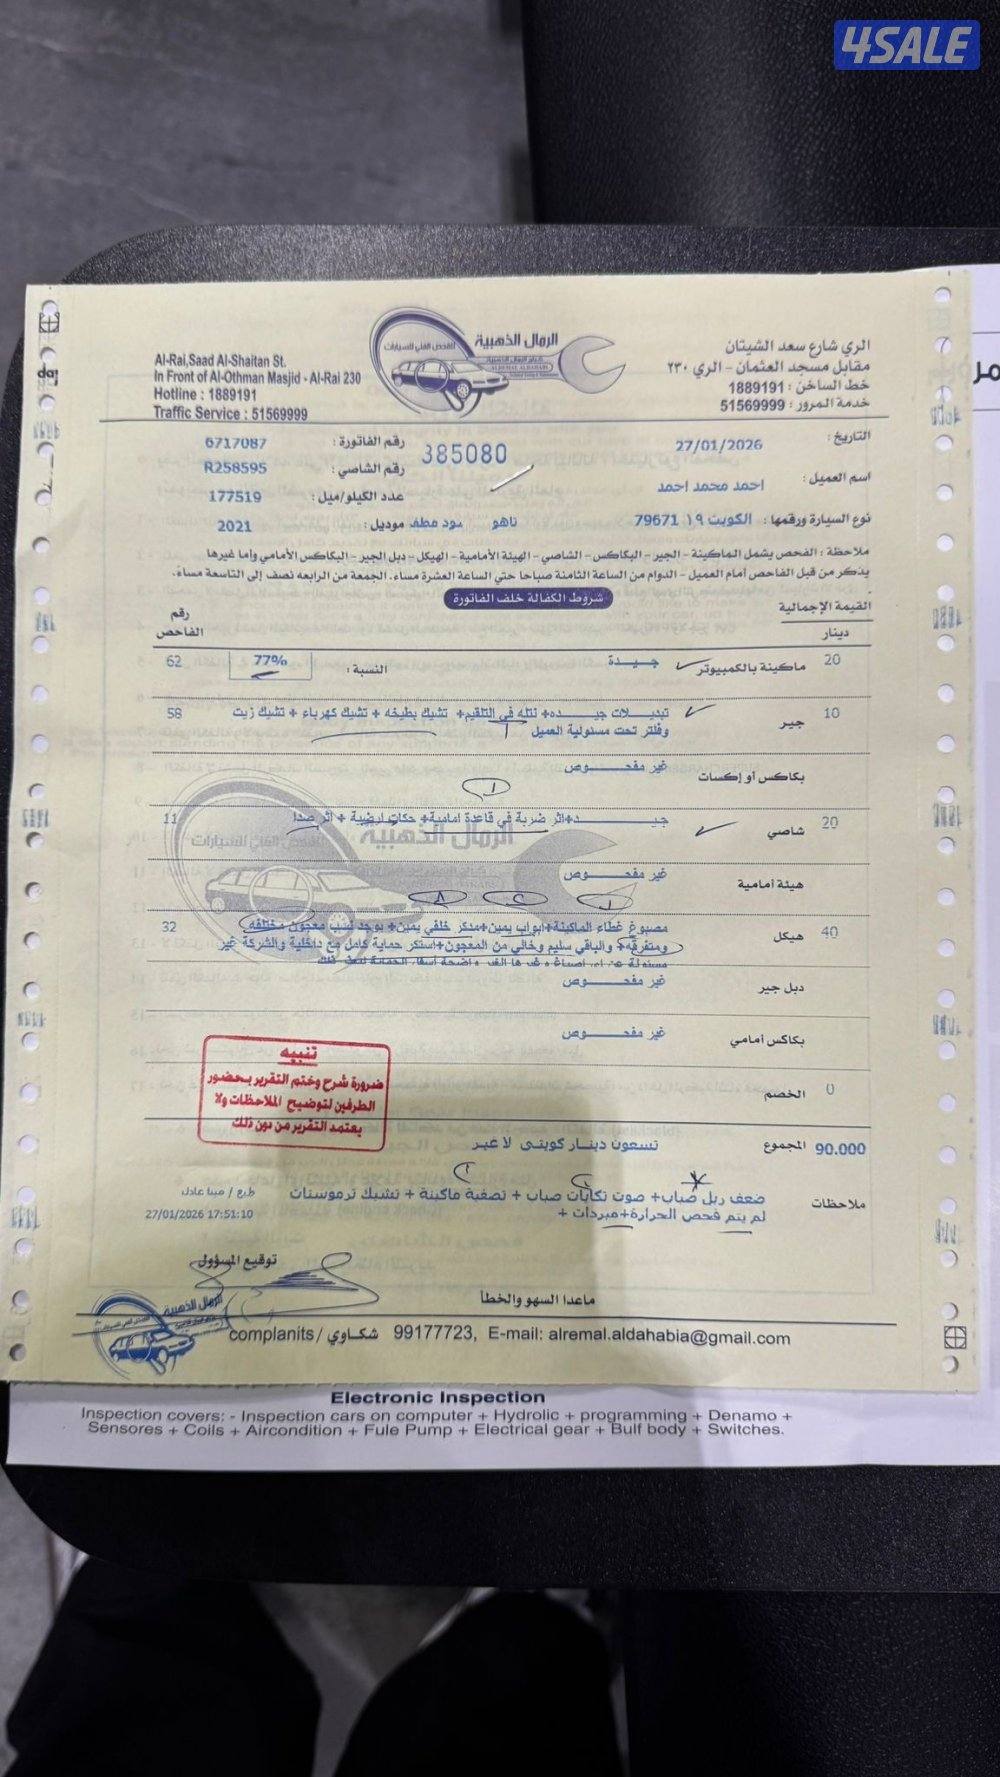 4SALE
الرمال الذهبية
الفحص الفني للسيارات
Al-Rai,Saad Al-Shaitan St.
In Front of Al-Othman Masjid - Al-Rai 230
Hotline : 1889191
Traffic Service : 51569999
الري شارع سعد الشيتان
مقابل مسجد العثمان - الري ٢٣٠
خط الساخن : 1889191
خدمة المرور : 51569999
التاريخ : 27/01/2026
385080
رقم الفاتورة : 6717087
اسم العميل : احمد محمد احمد
رقم الشاصي : R258595
عدد الكيلو/ميل : 177519
نوع السيارة ورقمها : الكويت ١٩ 79671 تاهو
موديل : 2021
ملاحظة : الفحص يشمل الماكينة - الجير - البكاكس - الشاصي - الهيئة الأمامية - الهيكل - دبل الجير - البكاكس الأمامي وما غيرها
يذكر من قبل الفاحص أمام العميل - الدوام من الساعة الثامنة صباحا حتي الساعة العشرة مساء. الجمعة من الرابعه نصف إلى التاسعة مساءً.
شروط الكفالة خلف الفاتورة
القيمة الإجمالية
دينار
رقم الفاحص
20 ماكينة بالكمبيوتر جيدة النسبة : 77% 62
10 جير تبديلات جيده+ نتله في التلقيم+ تشيك بطيخه + تشيك كهرباء + تشيك زيت 58
وفلتر تحت مسئولية العميل
بكاكس أو إكسات غير مفحوص
20 شاصي جيد+اثر ضربة في قاعدة امامية+ حكات ارضية + اثر صدا 11
هيئة أمامية غير مفحوص
40 هيكل مصبوغ غطاء الماكينة+ابواب يمين+مدكر خلفي يمين+ يوجد نسب معجون مختلفه 32
ومتفرقه+ والباقي سليم وخالي من المعجون+استكر حماية كامل مع داخلية والشركة غير
دبل جير غير مفحوص
بكاكس أمامي غير مفحوص
0 الخصم
تنبيه
ضرورة شرح وختم التقرير بحضور
الطرفين لتوضيح الملاحظات ولا
يعتمد التقرير من دون ذلك
90.000 المجموع تسعون دينار كويتى لا غير
ملاحظات ضعف ربل صباب+ صوت تكايات صباب + تصفية ماكينة + تشيك ترموستات
لم يتم فحص الحرارة+مبردات +
طبع / مينا عادل
27/01/2026 17:51:10
توقيع المسؤول
ماعدا السهو والخطأ
complanits / شكاوي 99177723, E-mail: alremal.aldahabia@gmail.com
Electronic Inspection
Inspection covers: - Inspection cars on computer + Hydrolic + programming + Denamo +
Sensores + Coils + Aircondition + Fule Pump + Electrical gear + Bulf body + Switches.